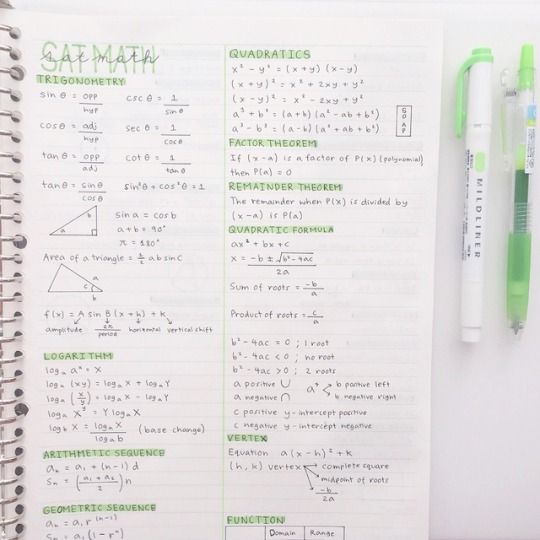 SAT MATH
sat math
TRIGONOMETRY
sin θ = opp/hyp   csc θ = 1/sin θ
cos θ = adj/hyp   sec θ = 1/cos θ
tan θ = opp/adj   cot θ = 1/tan θ
tan θ = sin θ/cos θ   sin²θ + cos²θ = 1
a b
sin a = cos b
a + b = 90°
π = 180°
Area of a triangle = ½ ab sin C
a
c
b
f(x) = A sin B (x + h) + k
amplitude 2π/period horizontal vertical shift
LOGARITHM
log a aˣ = X
log a (xy) = log a X + log a Y
log a (x/y) = log a X - log a Y
log a Xʸ = Y log a X
log b X = log a X/log a b (base change)
ARITHMETIC SEQUENCE
aₙ = a₁ + (n-1) d
Sₙ = (a₁ + a₂/2) n
GEOMETRIC SEQUENCE
aₙ = a₁ r ⁽ⁿ⁻¹⁾
Sₙ = a₁ (1 - rⁿ)
QUADRATICS
x² - y² = (x+y) (x-y)
(x+y)² = x² + 2xy + y²
(x-y)² = x² - 2xy + y²
a³ + b³ = (a+b) (a² - ab + b²)
a³ - b³ = (a-b) (a² + ab + b²)
S
O
A
P
FACTOR THEOREM
If (x-a) is a factor of P(x) (polynomial)
then P(a) = 0
REMAINDER THEOREM
The remainder when P(x) is divided by
(x-a) is P(a)
QUADRATIC FORMULA
ax² + bx + c
x = -b ± √b² - 4ac/2a
Sum of roots = -b/a
Product of roots = c/a
b² - 4ac = 0 ; 1 root
b² - 4ac < 0 ; no root
b² - 4ac > 0 ; 2 roots
a positive ∪
a negative ∩
a⁺ b positive left
b negative right
c positive y-intercept positive
c negative y-intercept negative
VERTEX
Equation a(x-h)² + k
(h, k) vertex complete square
midpoint of roots
-b/2a
FUNCTION
Domain Range
MILDLINER